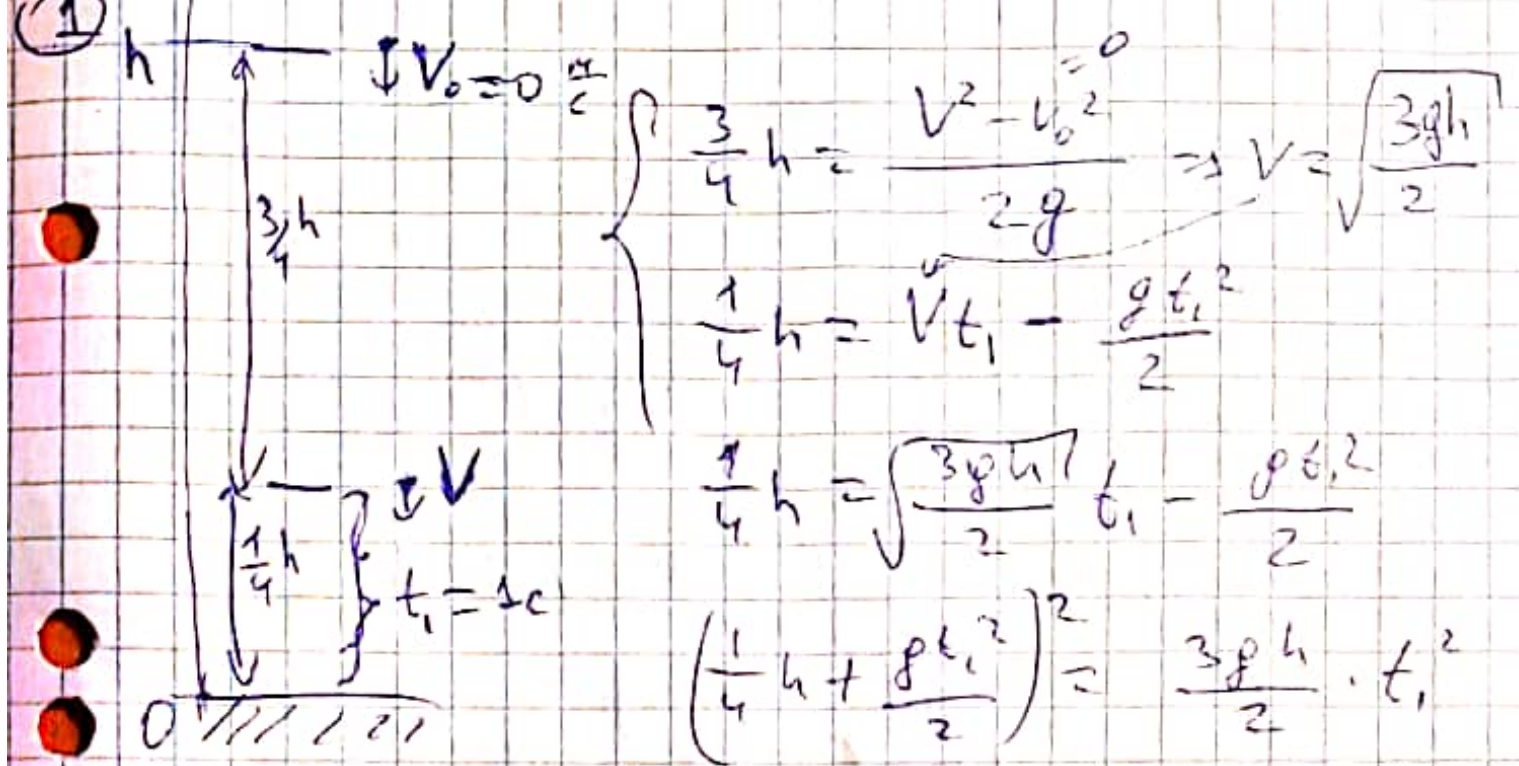 ①
h
↓ V₀ = 0 м/с
3/4 h
1/4 h
↓ V
t₁ = 1c
0
3/4 h = (V² - V₀²)/2g ⇒ V = √(3gh/2)
= 0
1/4 h = Vt₁ - gt₁²/2
1/4 h = √(3gh/2) t₁ - gt₁²/2
(1/4 h + gt₁²/2)² = 3gh/2 · t₁²